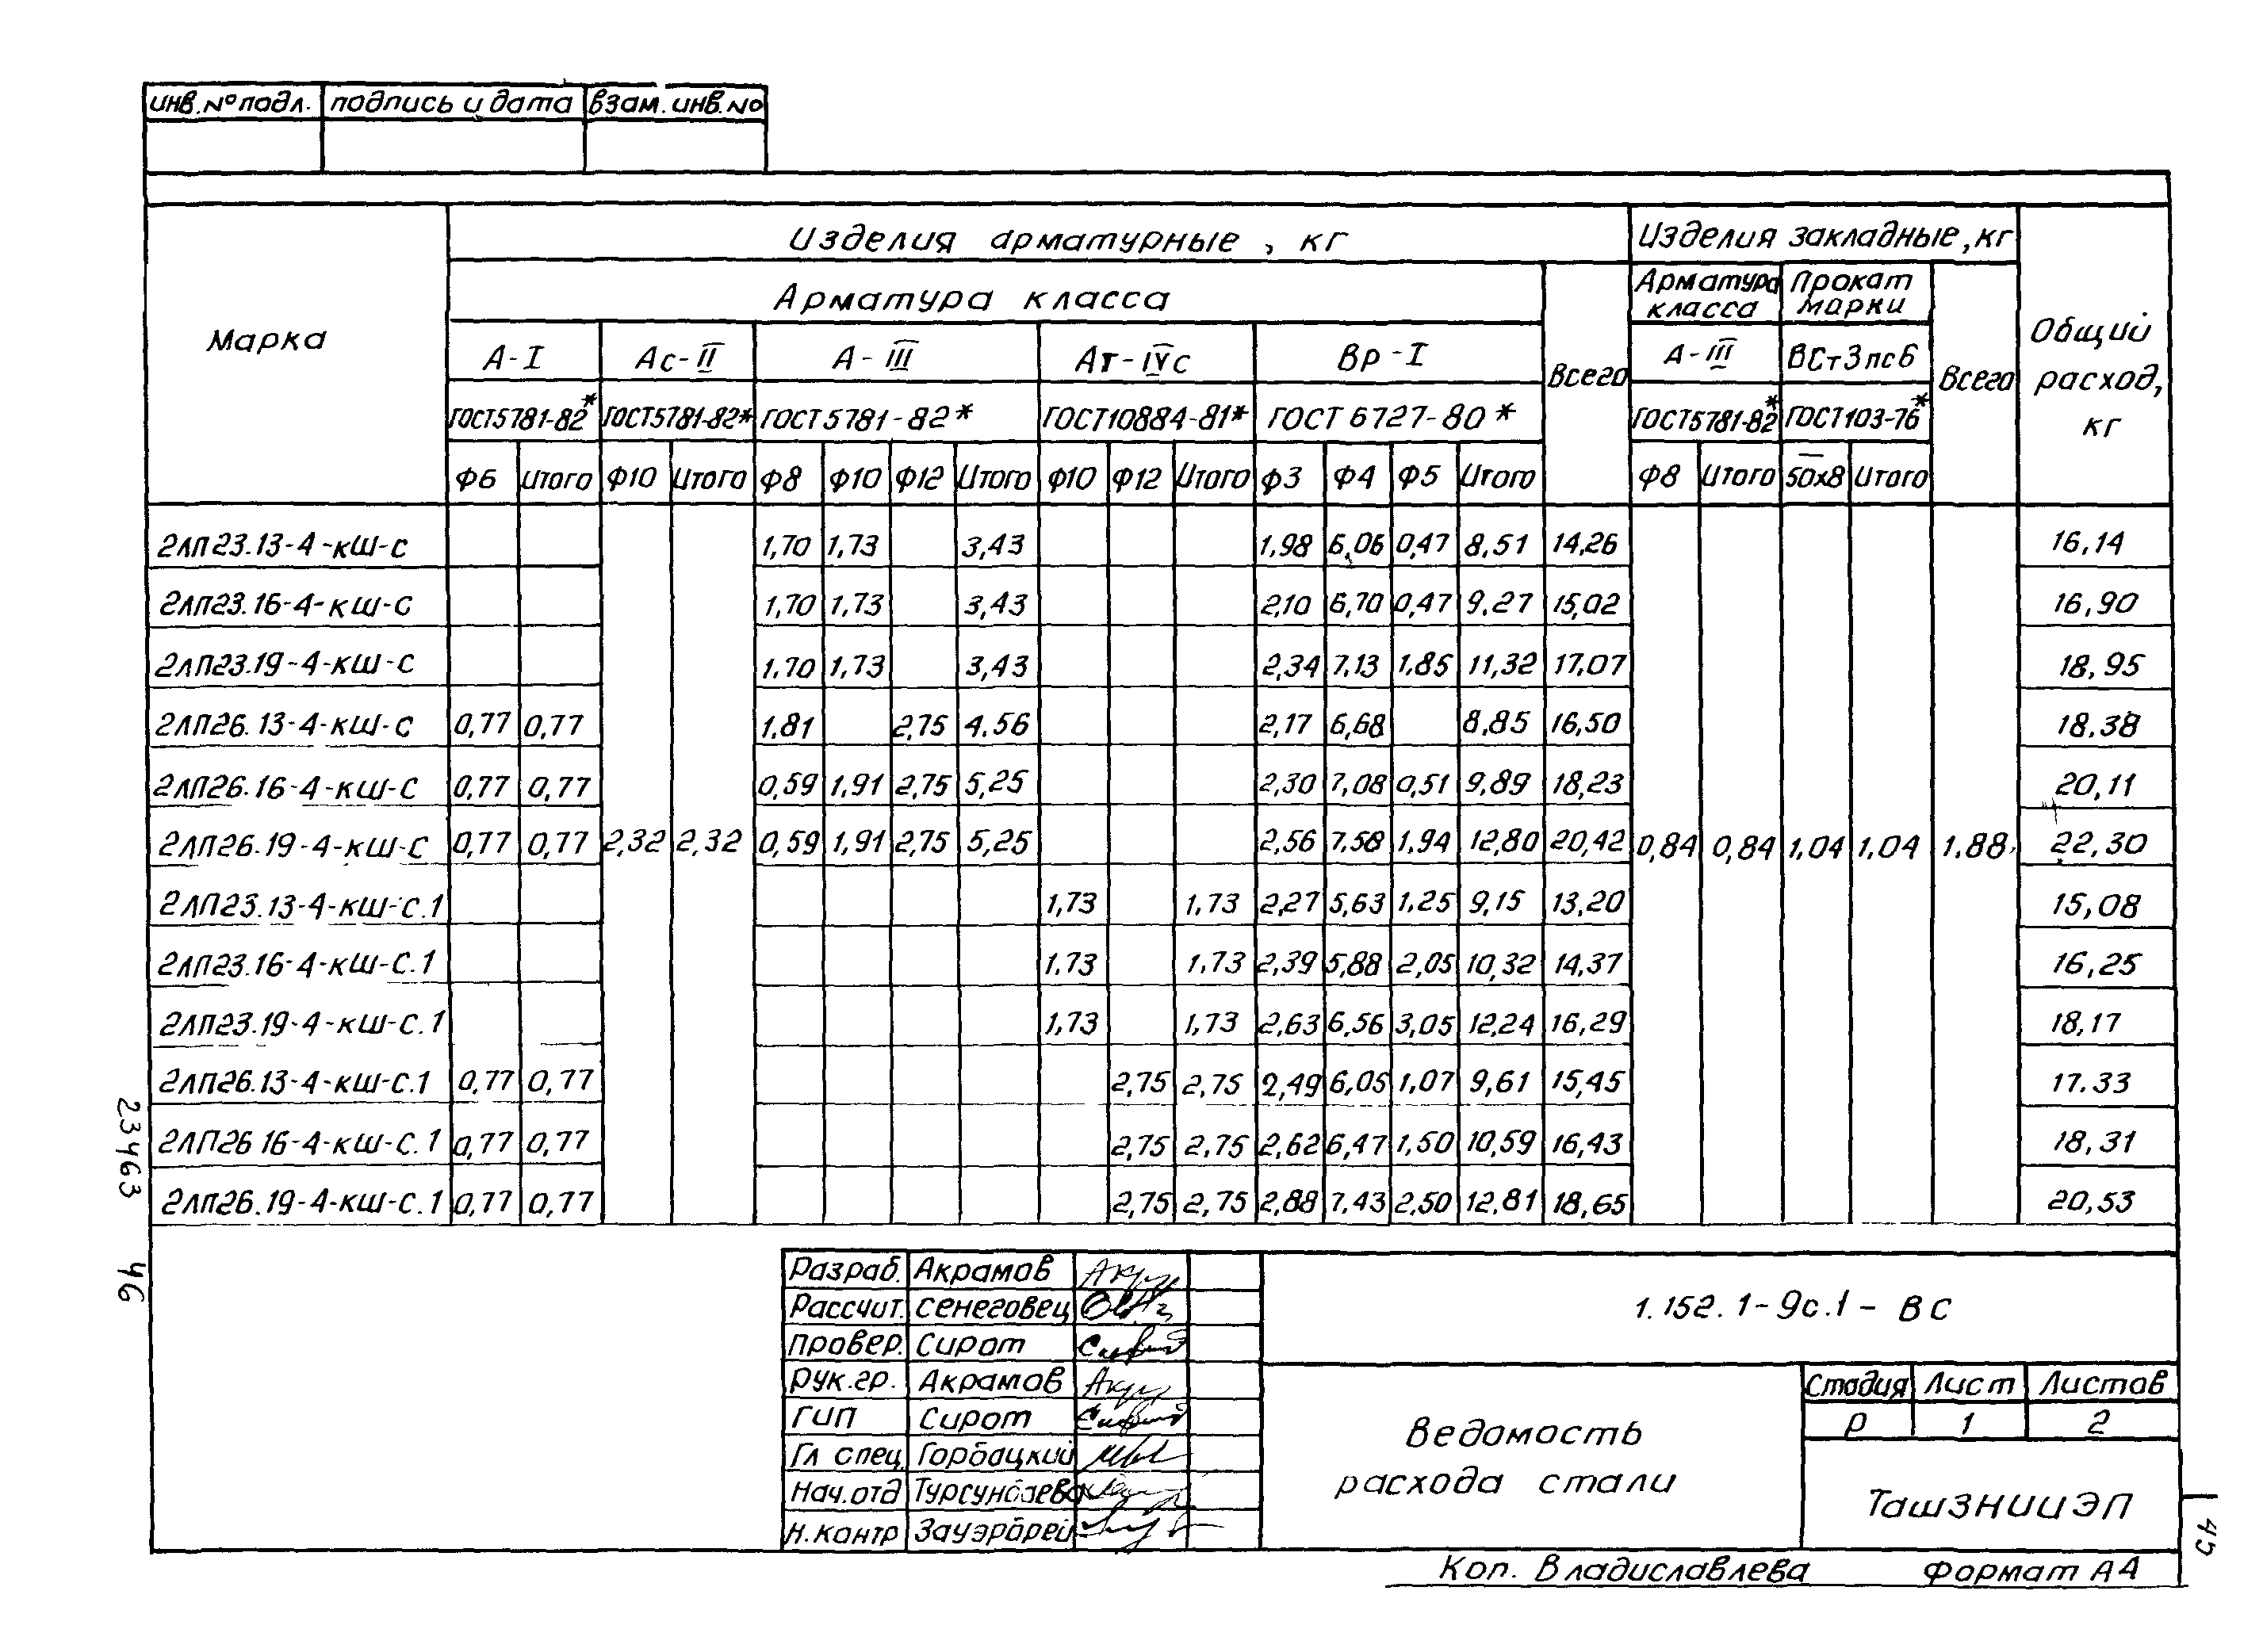 инв. № подл. подпись и дата взам. инв. №
Марка Изделия арматурные, кг Изделия закладные, кг Общий расход, кг
Арматура класса Всего Арматура класса Прокат марки Всего
А-I Ас-II А-III Ат-IVс Вр-I А-III ВСт3пс6
ГОСТ5781-82* ГОСТ5781-82* ГОСТ5781-82* ГОСТ10884-81* ГОСТ 6727-80* ГОСТ5781-82* ГОСТ103-76*
Ф6 Итого Ф10 Итого Ф8 Ф10 Ф12 Итого Ф10 Ф12 Итого Ф3 Ф4 Ф5 Итого Ф8 Итого 50x8 Итого
2ЛП23.13-4-кШ-С 1,70 1,73 3,43 1,98 6,06 0,47 8,51 14,26 16,14
2ЛП23.16-4-кШ-С 1,70 1,73 3,43 2,10 6,70 0,47 9,27 15,02 16,90
2ЛП23.19-4-кШ-С 1,70 1,73 3,43 2,34 7,13 1,85 11,32 17,07 18,95
2ЛП26.13-4-кШ-С 0,77 0,77 1,81 2,75 4,56 2,17 6,68 8,85 16,50 18,38
2ЛП26.16-4-кШ-С 0,77 0,77 0,59 1,91 2,75 5,25 2,30 7,08 0,51 9,89 18,23 20,11
2ЛП26.19-4-кШ-С 0,77 0,77 2,32 2,32 0,59 1,91 2,75 5,25 2,56 7,58 1,94 12,80 20,42 0,84 0,84 1,04 1,04 1,88 22,30
2ЛП23.13-4-кШ-С.1 1,73 1,73 2,27 5,63 1,25 9,15 13,20 15,08
2ЛП23.16-4-кШ-С.1 1,73 1,73 2,39 5,88 2,05 10,32 14,37 16,25
2ЛП23.19-4-кШ-С.1 1,73 1,73 2,63 6,56 3,05 12,24 16,29 18,17
2ЛП26.13-4-кШ-С.1 0,77 0,77 2,75 2,75 2,49 6,05 1,07 9,61 15,45 17.33
2ЛП26 16-4-кШ-С.1 0,77 0,77 2,75 2,75 2,62 6,47 1,50 10,59 16,43 18,31
2ЛП26.19-4-кШ-С.1 0,77 0,77 2,75 2,75 2,88 7,43 2,50 12,81 18,65 20,53
23463 46
Разраб. Акрамов
Рассчит. Сенеговец
Провер. Сирот
Рук.гр. Акрамов
ГИП Сирот
Гл спец. Горбацкий
Нач.отд Турсунбаева
Н.контр Зауэрбрей
1.152.1-9с.1-ВС
Ведомость
расхода стали
Стадия Лист Листов
Р 1 2
ТашЗНИИЭП
45
Коп. Владиславлева Формат А4